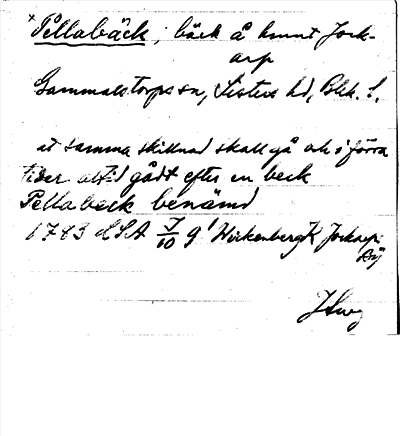 × Pellabäck, bäck å hmnt Jock-
arp
Gammalstorps sn, Listers hd, Blek. l.
at samma skillnad skall gå och i förra
tider altid gådt efter en beck
Pella beck benämd
1783 LSA 7/10 9¹ Wirkenberg Jockarp
By